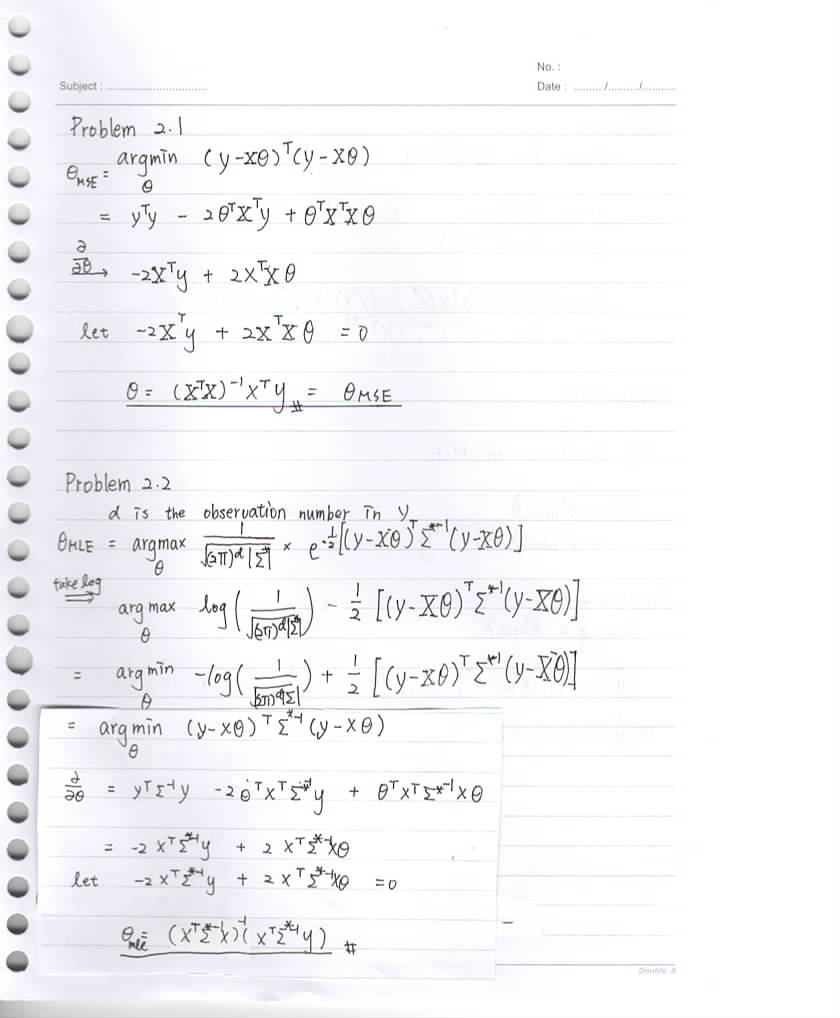 No. :
Subject : ................................ Date : ........../........../...........
Problem 2.1
θ_MSE = argmin_θ (y-Xθ)^T(y-Xθ)
= y^Ty - 2θ^TX^Ty + θ^TX^TXθ
∂/∂θ → -2X^Ty + 2X^TXθ
let -2X^Ty + 2X^TXθ = 0
θ = (X^TX)^-1 X^Ty # = θ_MSE
Problem 2.2
d is the observation number in y
θ_MLE = argmax_θ 1/√((2π)^d |Σ*|) × e^{-1/2[(y-Xθ)^T Σ*^-1 (y-Xθ)]}
take log ⇒ argmax_θ log(1/√((2π)^d |Σ*|)) - 1/2 [(y-Xθ)^T Σ*^-1 (y-Xθ)]
= argmin_θ -log(1/√((2π)^d |Σ|)) + 1/2 [(y-Xθ)^T Σ*^-1 (y-Xθ)]
= argmin_θ (y-Xθ)^T Σ*^-1 (y-Xθ)
∂/∂θ = y^T Σ^-1 y - 2θ^T X^T Σ*^-1 y + θ^T X^T Σ*^-1 Xθ
= -2X^T Σ*^-1 y + 2X^T Σ*^-1 Xθ
let -2X^T Σ*^-1 y + 2X^T Σ*^-1 Xθ = 0
θ_mle = (X^T Σ*^-1 X)^-1 (X^T Σ*^-1 y) #
Double A